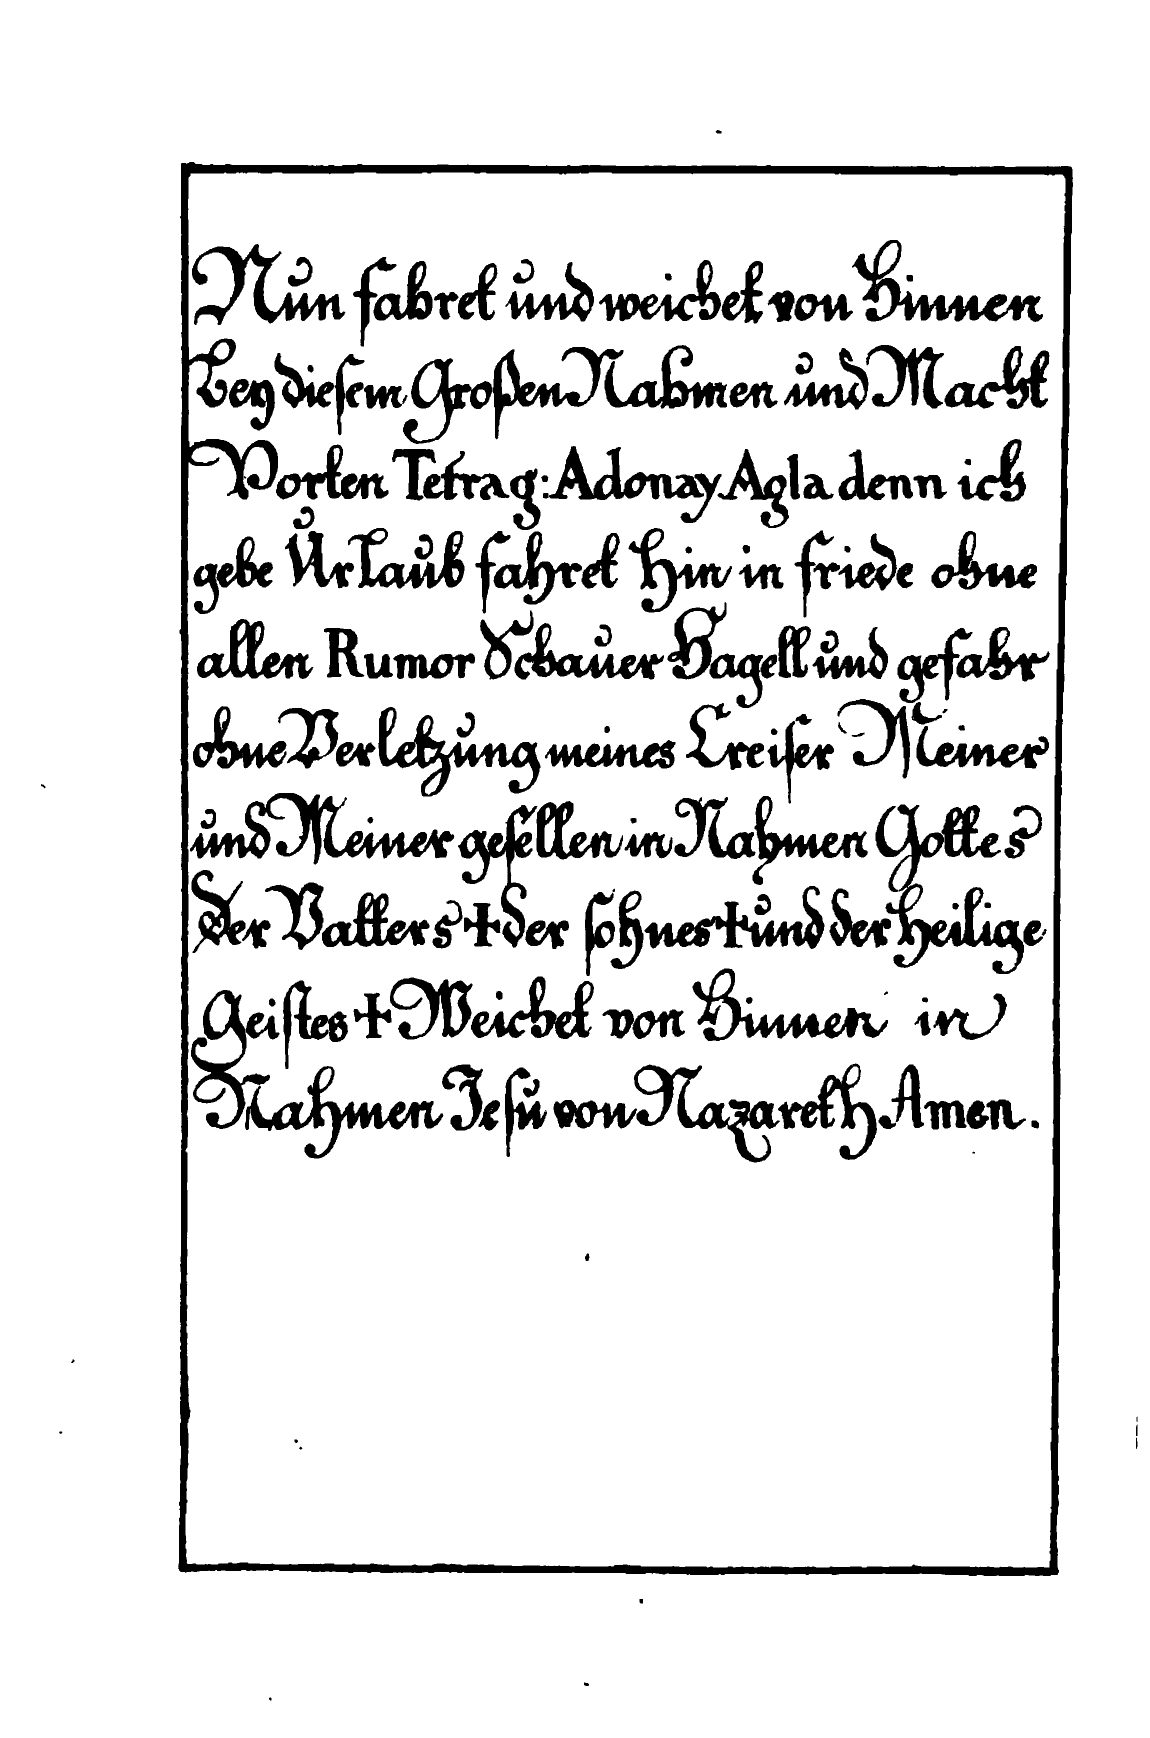 Nun fahret und weichet von Hinnen
Bey diesem Großen Nahmen und Macht
Worten Tetrag: Adonay Agla denn ich
gebe Urlaub fahret Hin in friede ohne
allen Rumor Schauer Hagell und gefahr
ohne Verletzung meines Creiser Meiner
und Meiner gesellen in Nahmen Gottes
der Vatters ✝ der sohnes ✝ und der Heilige
Geistes ✝ Weichet von Hinnen in
Nahmen Jesu von Nazareth Amen.